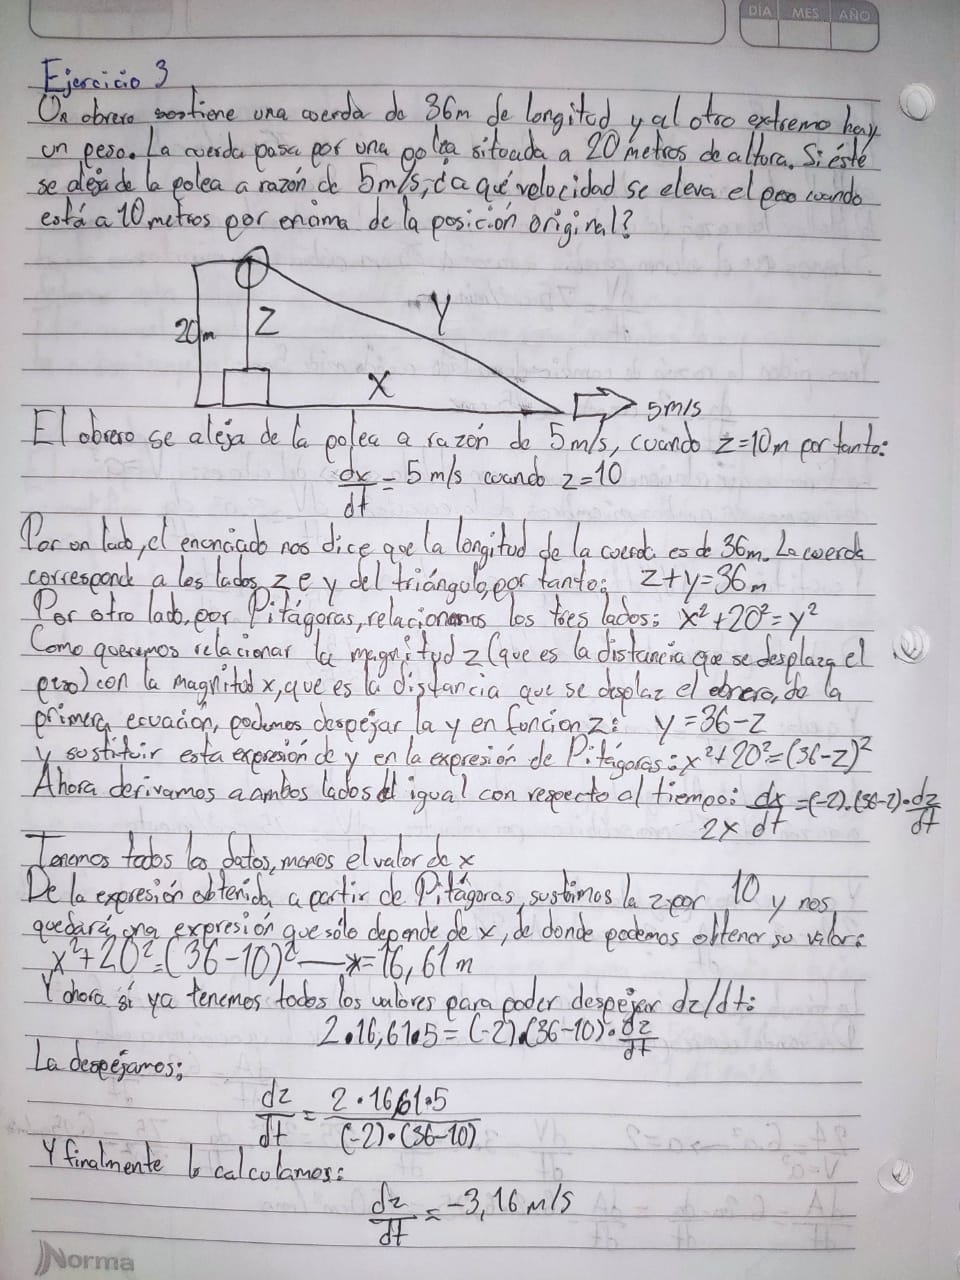 DÍA MES AÑO
Ejercicio 3
Un obrero sostiene una cuerda de 36m de longitud y al otro extremo hay
un peso. La cuerda pasa por una polea situada a 20 metros de altura. Si éste
se aleja de la polea a razón de 5m/s, ¿a qué velocidad se eleva el peso cuando
está a 10 metros por encima de la posición original?
20m
Z
Y
X
5m/s
El obrero se aleja de la polea a razón de 5m/s, cuando z=10m por tanto:
dx/dt = 5 m/s cuando z=10
Por un lado, el enunciado nos dice que la longitud de la cuerda es de 36m. La cuerda
corresponde a los lados z e y del triángulo, por tanto: z+y=36m
Por otro lado, por Pitágoras, relacionamos los tres lados: x²+20²=y²
Como queremos relacionar la magnitud z (que es la distancia que se desplaza el
peso) con la magnitud x, que es la distancia que se desplaz el obrero, de la
primera ecuación, podemos despejar la y en funcion z: y=36-z
y sustituir esta expresión de y en la expresión de Pitágoras: x²+20²=(36-z)²
Ahora derivamos a ambos lados del igual con respecto al tiempo: 2x dx/dt =(-2).(36-z)·dz/dt
Tenemos todos los datos, menos el valor de x
De la expresión obtenida a partir de Pitágoras, sustimos la z por 10 y nos
quedará una expresión que sólo depende de x, de donde podemos obtener su valor:
x²+20²=(36-10)² — x=16,61m
Y ahora sí ya tenemos todos los valores para poder despejar dz/dt:
2·16,61·5=(-2).(36-10)·dz/dt
La despejamos:
dz/dt = 2·16,61·5/(-2)·(36-10)
Y finalmente lo calculamos:
dz/dt = -3,16 m/s
Norma